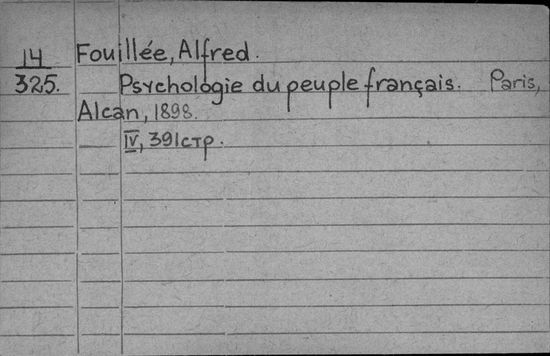 14 Fouillée, Alfred.
325. Psychologie du peuple français. Paris,
Alcan, 1898.
IV, 391 стр.